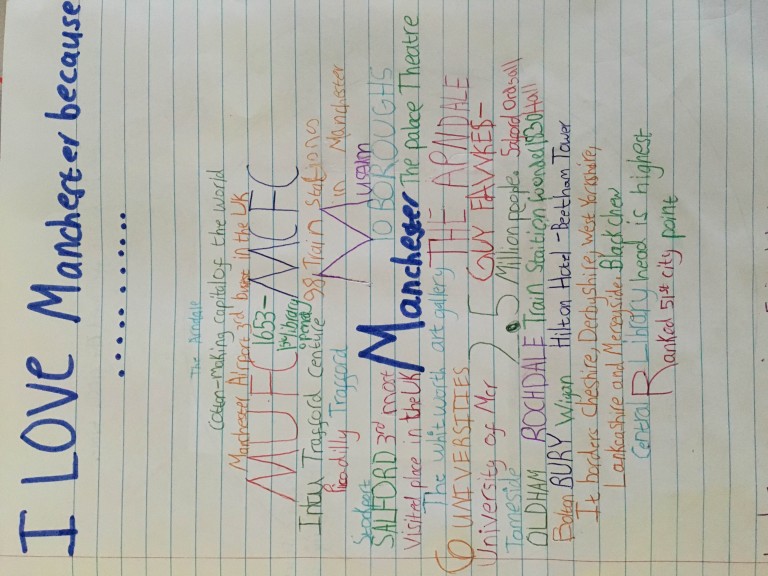 I LOVE Manchester because
..........
The Arndale
Cotton-Making capital of the world
Manchester Airport 3rd busest in the UK
MUFC 1653- 1st library opened MCFC
Intu Trafford centure 98 Train Stationos
Piccadilly Trafford Museum in Manchester
Stockport
SALFORD 3rd most 10 BOROUGHS
Visited place in the UK Manchester The palace Theatre
The whitworth art gallery THE ARNDALE
6 UNIVERSITIES GUY FAWKES-
University of Mcr 2.5 Million people Salford Ordsall Hall
Tameside
OLDHAM ROCHDALE Train Staition 1830
Bolton BURY Wigan Hilton Hotel-Beetham Tower
It borders Cheshire, Derbyshire, West Yorkshire,
Lankashire and Merseyside. Black Chew
Central Library head is highest
Ranked 51st city point